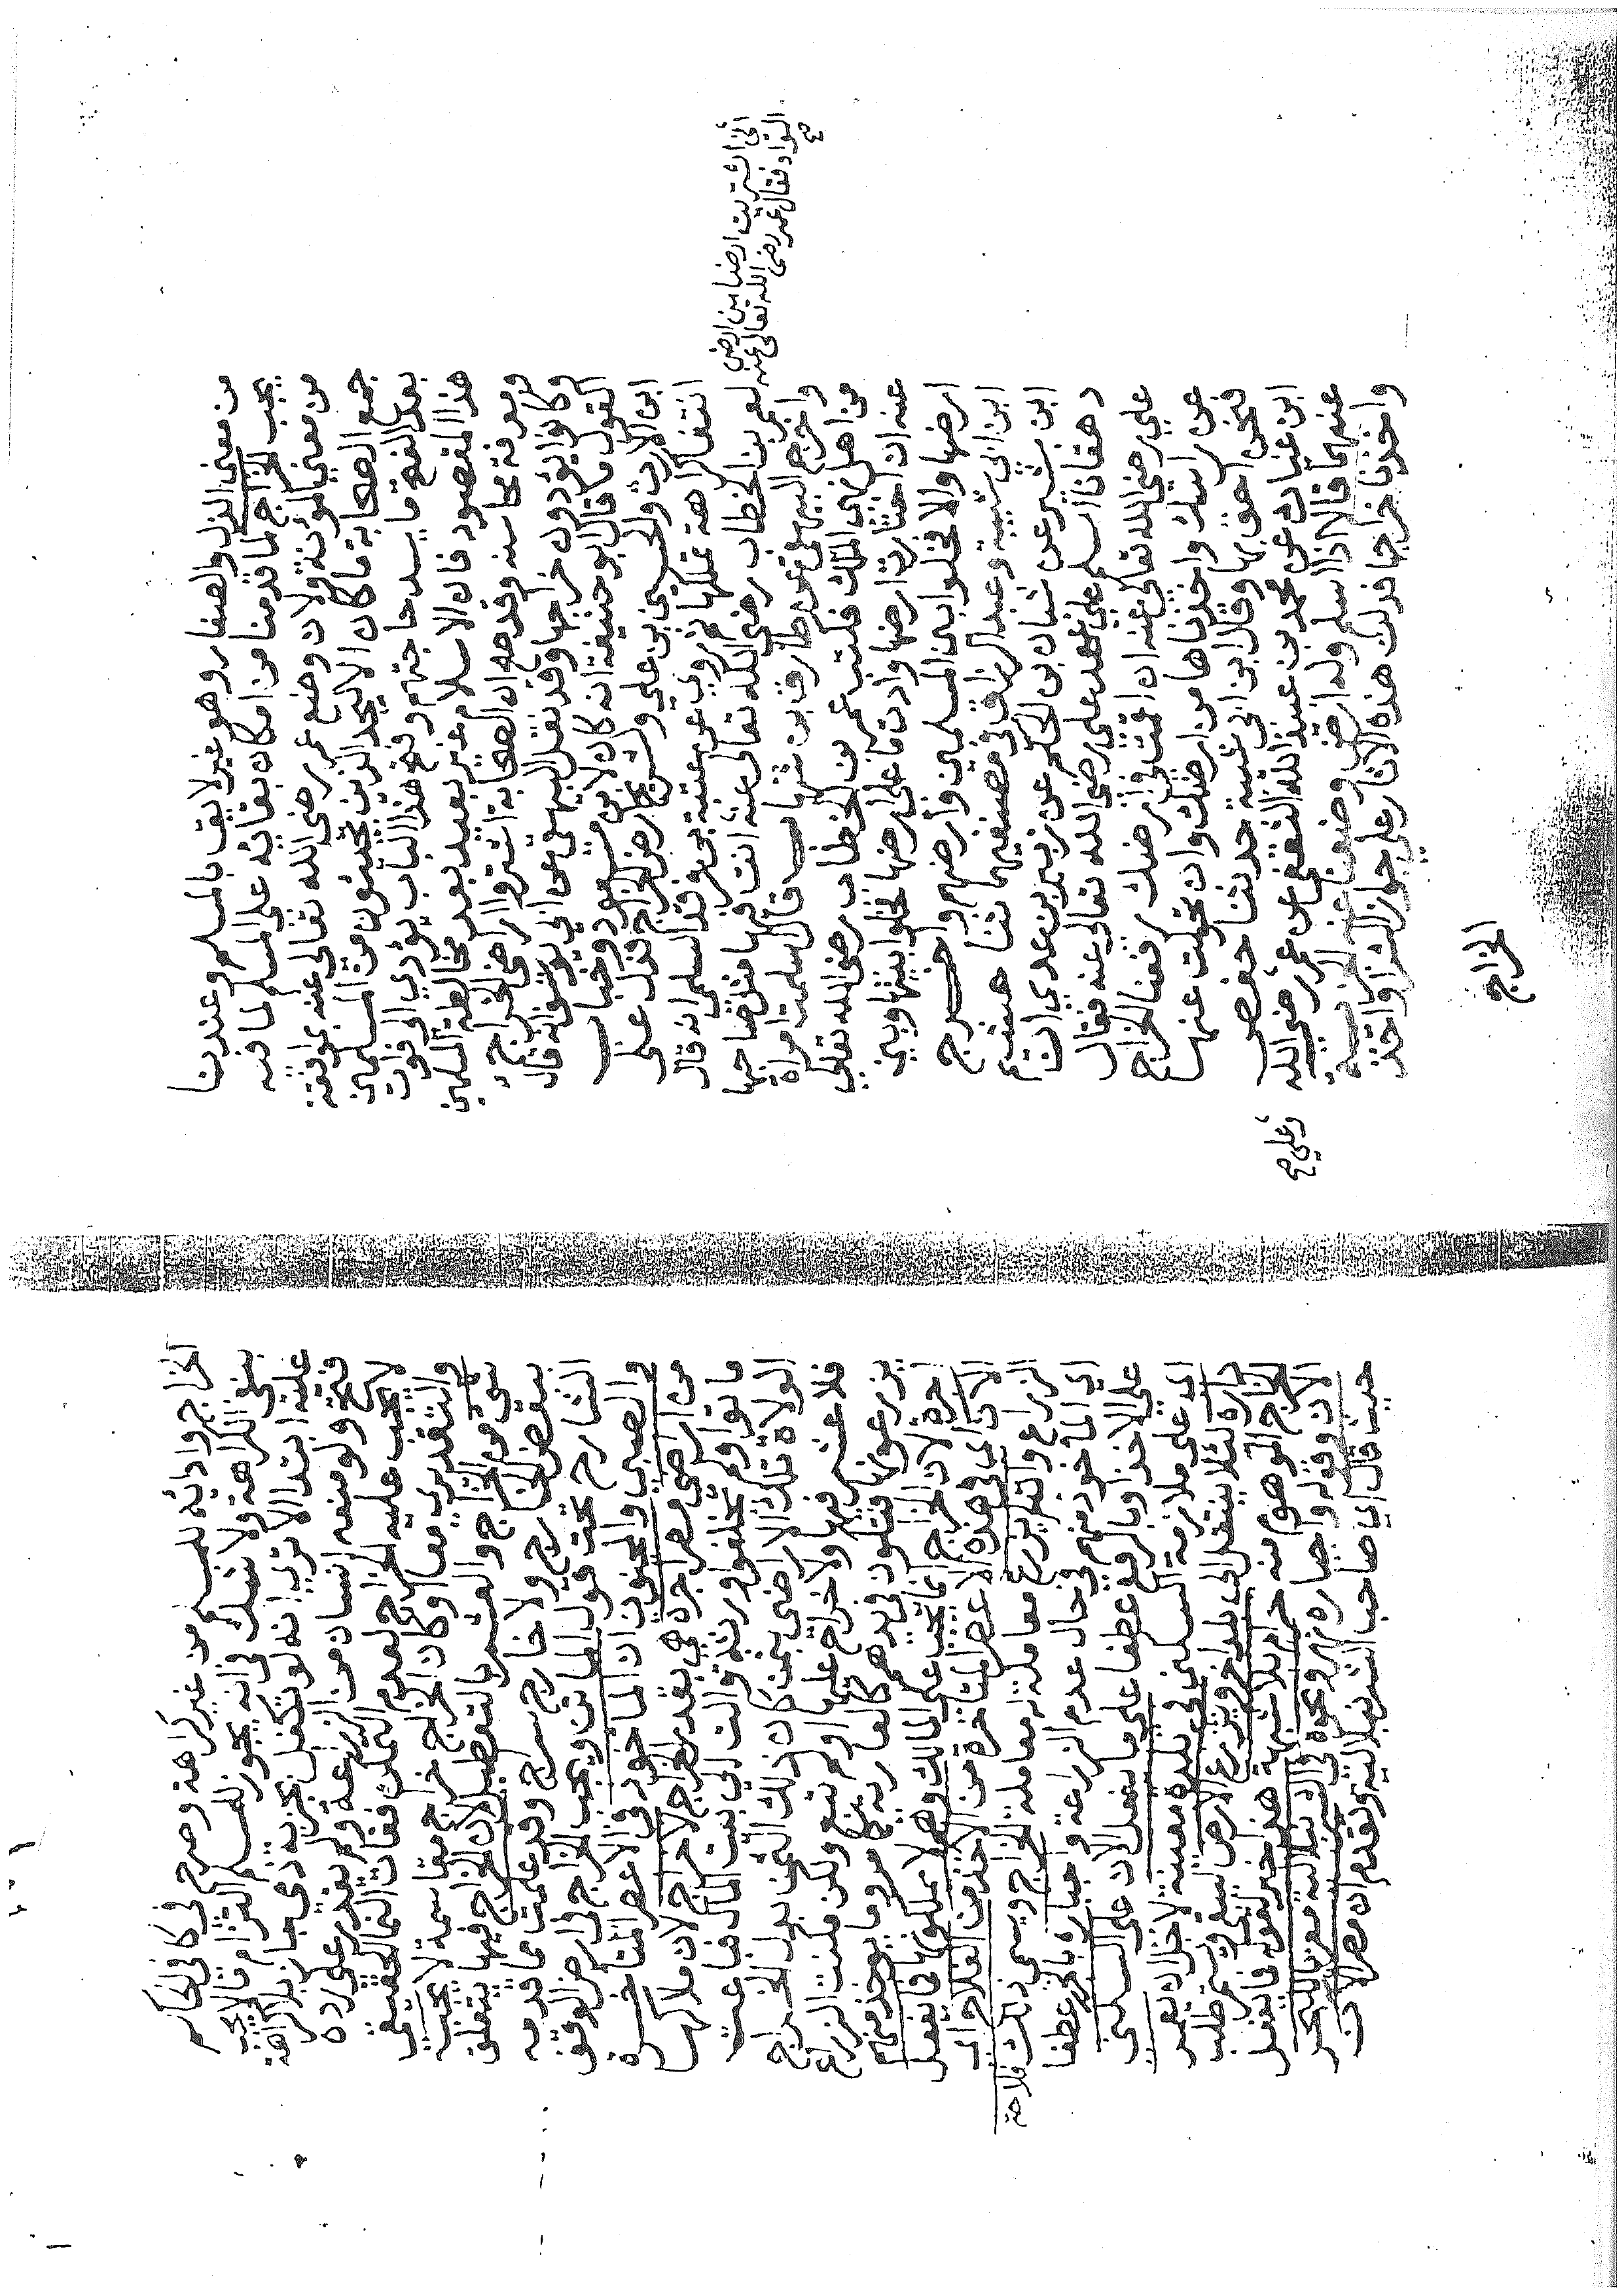 من معنى الذل والصغار وهو غير لايق بالمسلم وعندنا
يجب الخراج لما قدمنا من امكان بقايه على المسلم لما فيه
من معنى المؤنة ولان وضع عمر رضي الله تعالى عنه بموافقة
جمع الصحابة ما كان الا ليجد الذين يجيئون من المسلمين
بعد الفتح ما يسد حاجتهم وفتح هذا الباب يؤدي الى فوات
هذا المقصود فان الاسلام غير بعيد بعد مخالطة المسلمين
ومعرفة محاسنه وقد صح ان الصحابة اشتروا اراضي الخراج
وكانوا يؤدون خراجها وقد نقل البيهقي عن ابي يوسف انه قال
القول ما قال ابو حنيفة انه كان لابن مسعود وخباب
ابن الارت والحسين بن علي ولشريح ارض الخراج فدل على
انتفا كراهة تملكها ثم روى عن عتبة بن فرقد السلمي انه قال
لعمر بن الخطاب رضي الله تعالى عنه انت فيها مثل صاحبها
اني اشتريت ارضا من ارض
السواد فقال عمر رضي الله تعالى عنه
صح
واخرج البيهقي عن طارق بن شهاب قال اسلمت امراة
من اهل نهر الملك فكتب عمر بن الخطاب رضي الله تعالى
عنه ان اختارت ارضها وادت ما على ارضها فخلوا بينها وبين
ارضها والا فخلوا بين المسلمين وارضهم واخرج
ابن ابي شيبة وعبد الرزاق في مصنفيهما ثنا هشيم
ابن بشير عن سيار بن الحكم عن زبير بن عدي ان
دهقانا اسلم على عهد علي رضي الله تعالى عنه فقال
علي رضي الله تعالى عنه ان اقمت في ارضك رفعنا الخراج
عن راسك واخذناها من ارضك وان تحولت عنها
فنحن احق بها وقال ابن ابي شيبة حدثنا حفص
ابن غياث عن محمد بن عبيد الله الثقفي عن عمر رضي الله
وعلي صح
عنهما قالا اذا اسلم وله ارض وضعنا عنه الجزية
واخذنا خراجها فدلت هذه الاثار على جواز الشرا واخذ
الخراج
الخراج وادايه للمسلم من غير كراهة وصرح في كافي الحاكم
بنفي الكراهة ولا شك في انه يجوز للمسلم التزام ما لا يجب
عليه ابتدا الا ترى انه لو تكفل بجزية ذمي جاز بلا كراهة
فتح ولو منعه انسان من الزراعة ولم يقدر على رده
لا يجب عليه الخراج لعدم التمكن ففات النما الحقيقي
والتقديري معا وكان الخراج خراج مقاسمة لا يجب
شي من الخراج والعشر بالتعطيل لان الخراج فيها يتعلق
ببعض الخارج ولا خارج سراج وقد علمت ما قدمه
الشارح تحت قول الماتن ويجب الخراج في ارض الوقف
والصبي والمجنون ان الماخوذ في الاعصار المتاخرة
من اراضي مصر اجرة هي بقدر الخراج لا خراج لان ملاكها
ماتوا ولم يخلفوا ورثة والت الى بيت المال فباعت
الولاة تلك الاراضي بثمن كان ذلك الثمن بدل الخراج
فلا عشر فيها ولا خراج عليها ولم تبع ولكن مكنت الزراع
يزرعونها فتكون في يدهم كالعارية وما يوخذ منهم
اجرة لان الخراج انما يجب على المالك وهم لا يملكونها فما يفعل
الان اي في هذه الاعصار المتاخرة من الاخذ من الفلاح اي
الزراع والتقرير مع معاملته له معاملة الخراج ويسمى ذلك فلاحة
اي الماخوذ منهم في حال عدم الزراعة واجباره بالجر عطفا
على الاخذ او بالرفع عطفا على ما يفعل الان على السكنى
اي على ملازمة السكنى في بلدة معينة لاجل ان يعمر
داره لئلا ينتقل الى بلد اخر ويزرع الارض
الخراج الموهوم منه حرام بلا شبهة هذا خبر لقوله فما يفعل
الان وقوله واجباره نهر ونحوه في الشرنبلالية معزيا للبحر
حيث قال اي صاحب الشرنبلالية وتقدم ان مصر الان